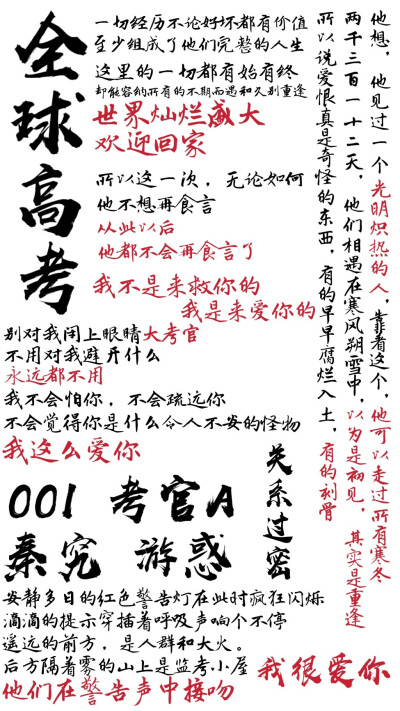 全球高考
一切经历不论好坏都有价值
至少组成了他们完整的人生
这里的一切都有始有终
却能容纳所有的不期而遇和久别重逢
世界灿烂盛大
欢迎回家
所以这一次，无论如何
他不想再食言
从此以后
他都不会再食言了
我不是来救你的
我是来爱你的
他想，他见过一个光明炽热的人，靠着这个，他可以走过所有寒冬
两千三百一十二天，他们相遇在寒风朔雪中，以为是初见，其实是重逢
所以说爱恨真是奇怪的东西，有的早早腐烂入土，有的刻骨
别对我闭上眼睛大考官
不用对我避开什么
永远都不用
我不会怕你，不会疏远你
不会觉得你是什么令人不安的怪物
我这么爱你
关系过密
001 考官A
秦究 游惑
安静多日的红色警告灯在此时疯狂闪烁
滴滴的提示穿插着呼吸声响个不停
遥远的前方，是人群和大火。
后方隔着雾的山上是监考小屋
他们在警告声中接吻
我很爱你